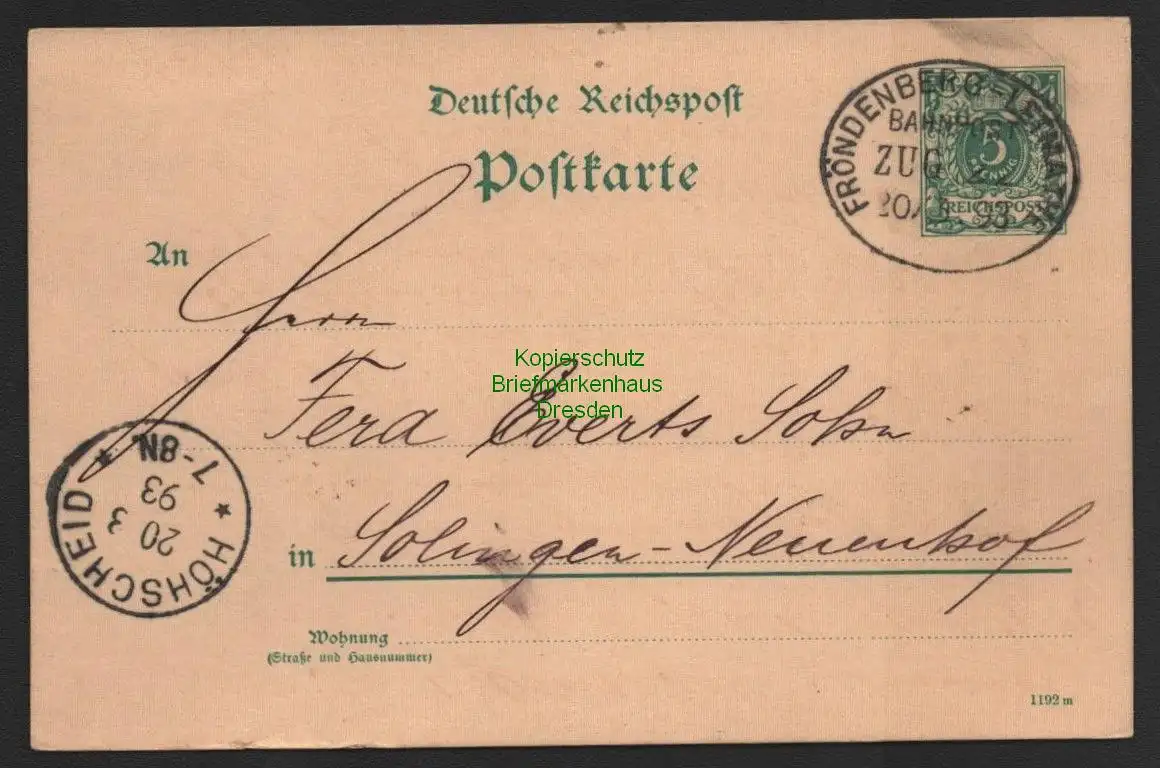 Deutsche Reichspost
Postkarte
FRÖNDENBERG=LETMATHE
BAHNPOST
ZUG
20/3 93
5
PFENNIG
REICHSPOST
An
Herrn
Kopierschutz
Briefmarkenhaus
Dresden
Ferd Everts Sohn
HÖHSCHEID
20 3
93
7-8N.
in Solingen-Neuenhof
Wohnung
(Straße und Hausnummer)
1192 m